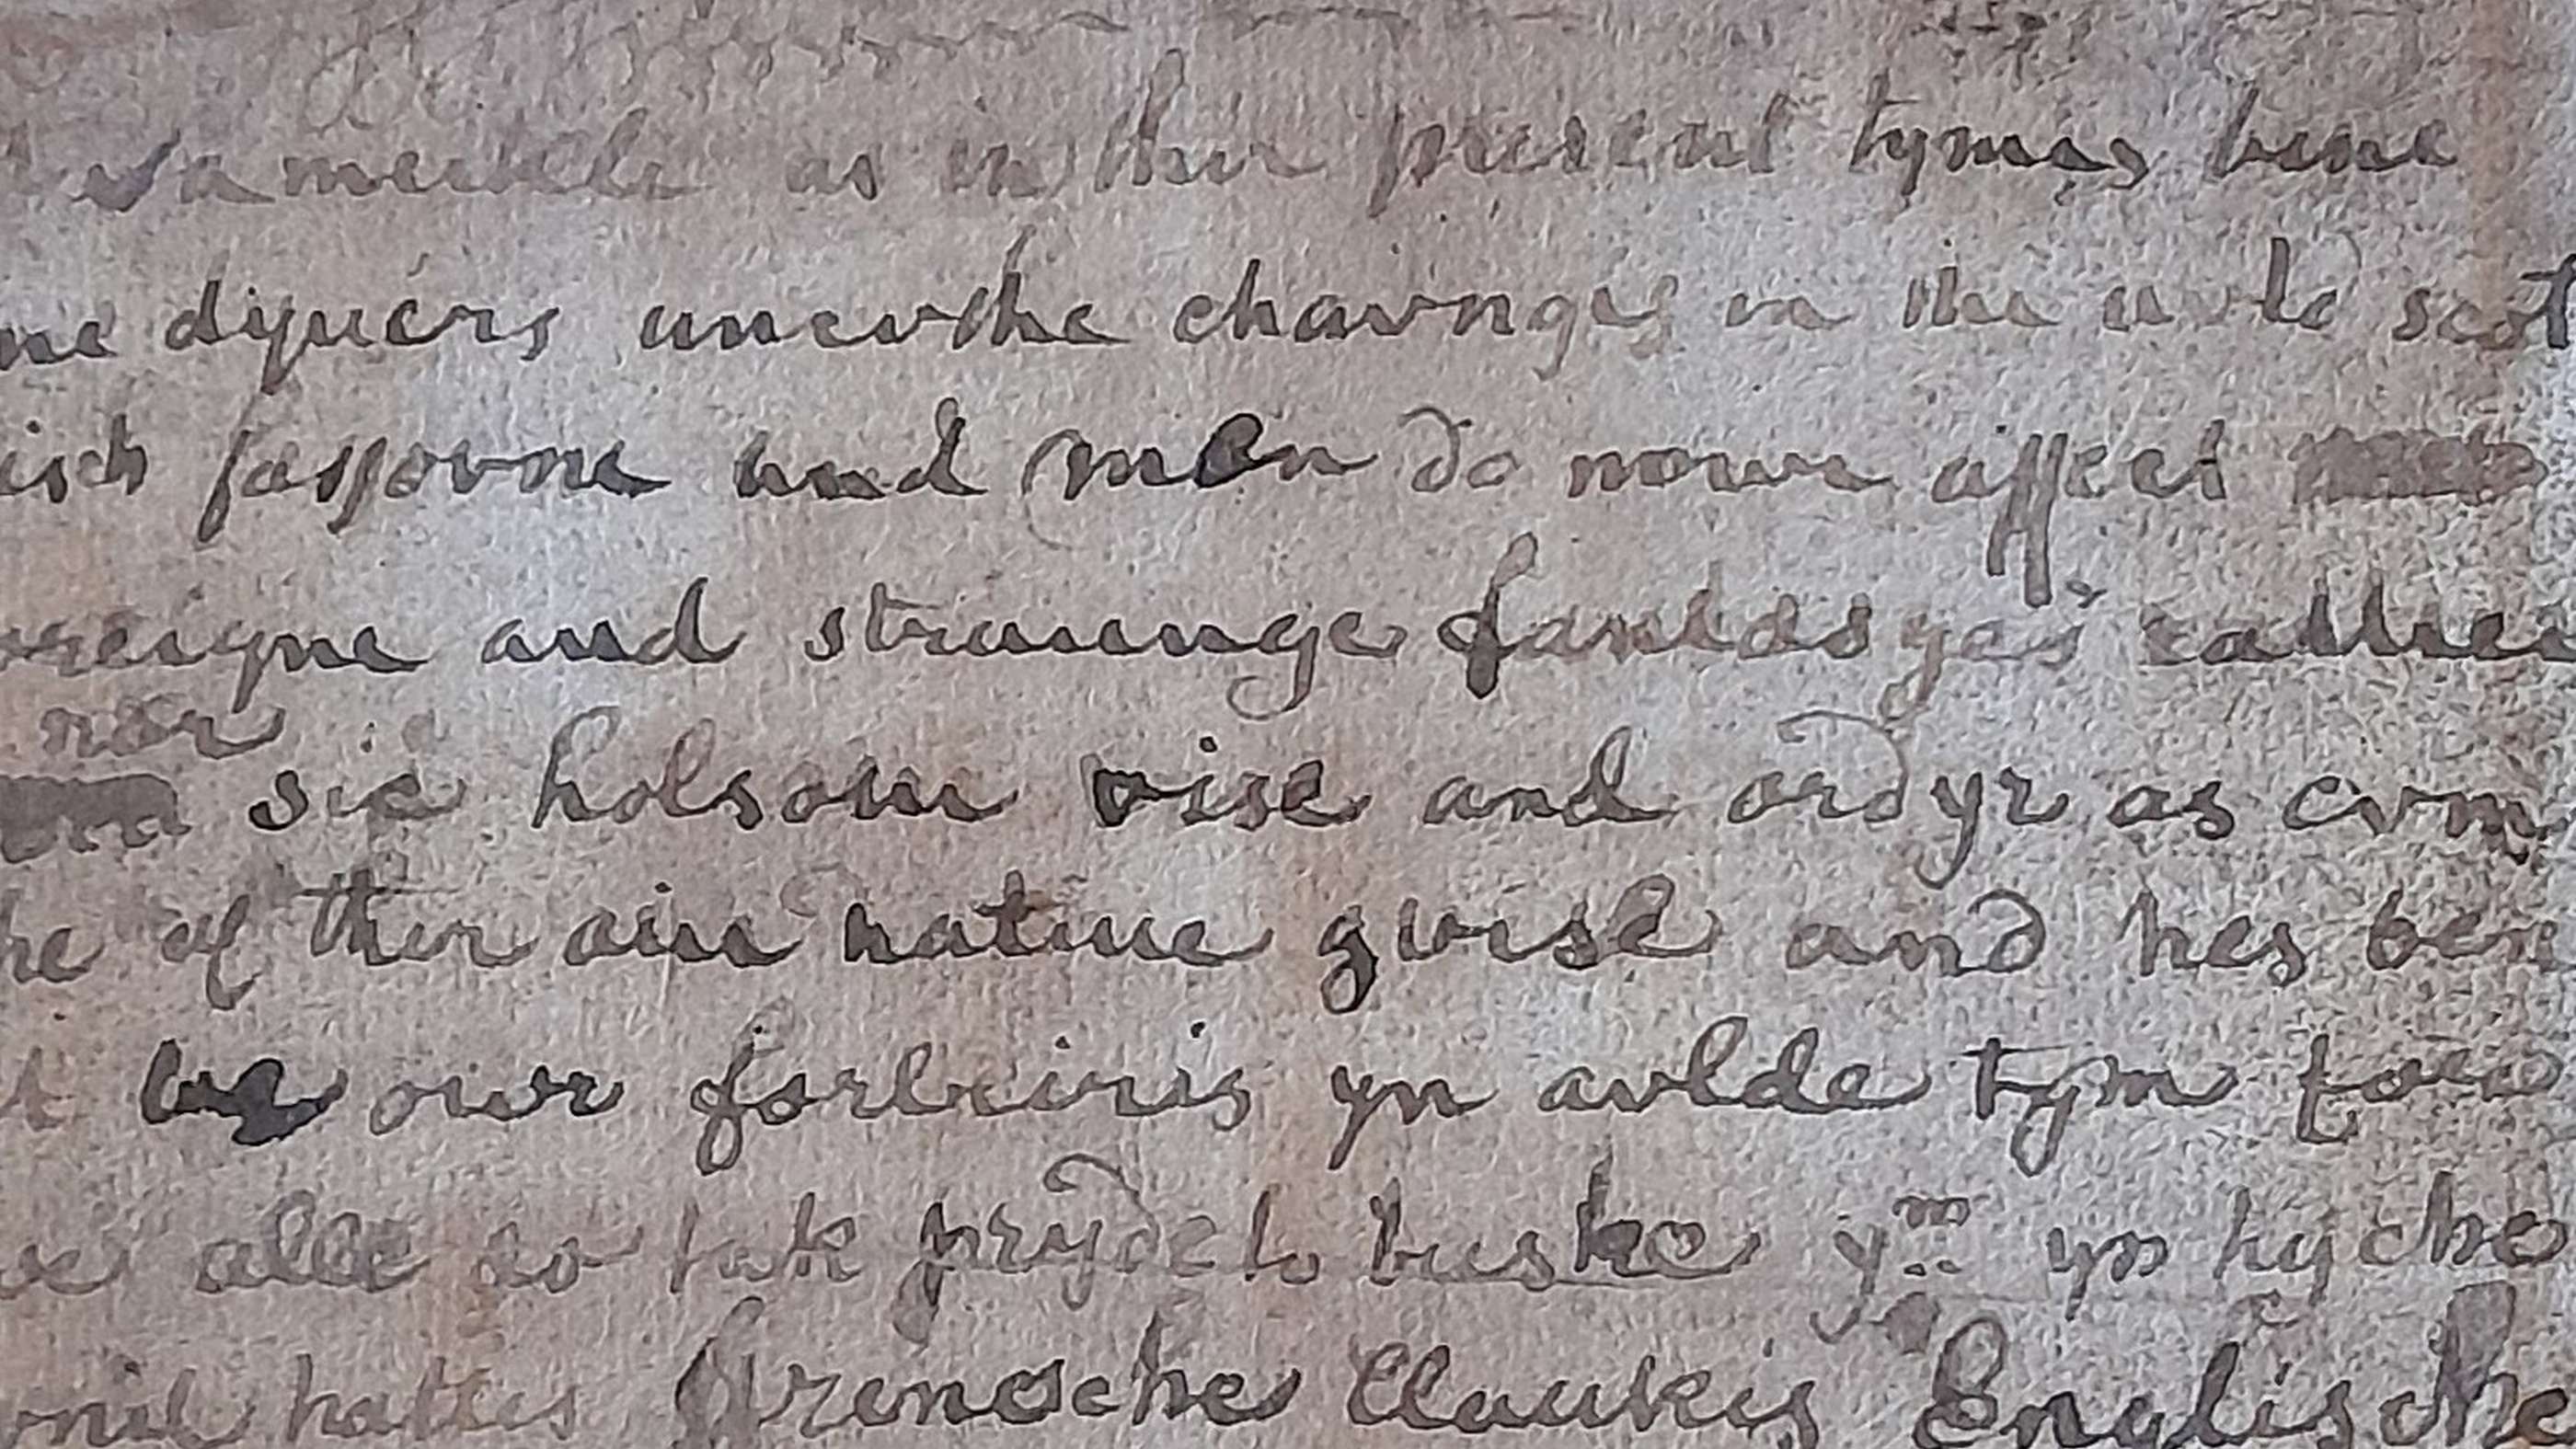 sva meikle as in ther present tymis bene
me dyuers uncvthe chavnges in the avld scot
isch fassovne and men do nowe affect
oreigne and straunge fantasyes rather
nor
sic holsom vise and ordyr as cvm
he of ther ain natiue gvise and hes ben
t be owr forbeiris yn avlde tym fore
alle do tak pryde to buske ym yn hyche
hattis Frensche Cloukis Englische